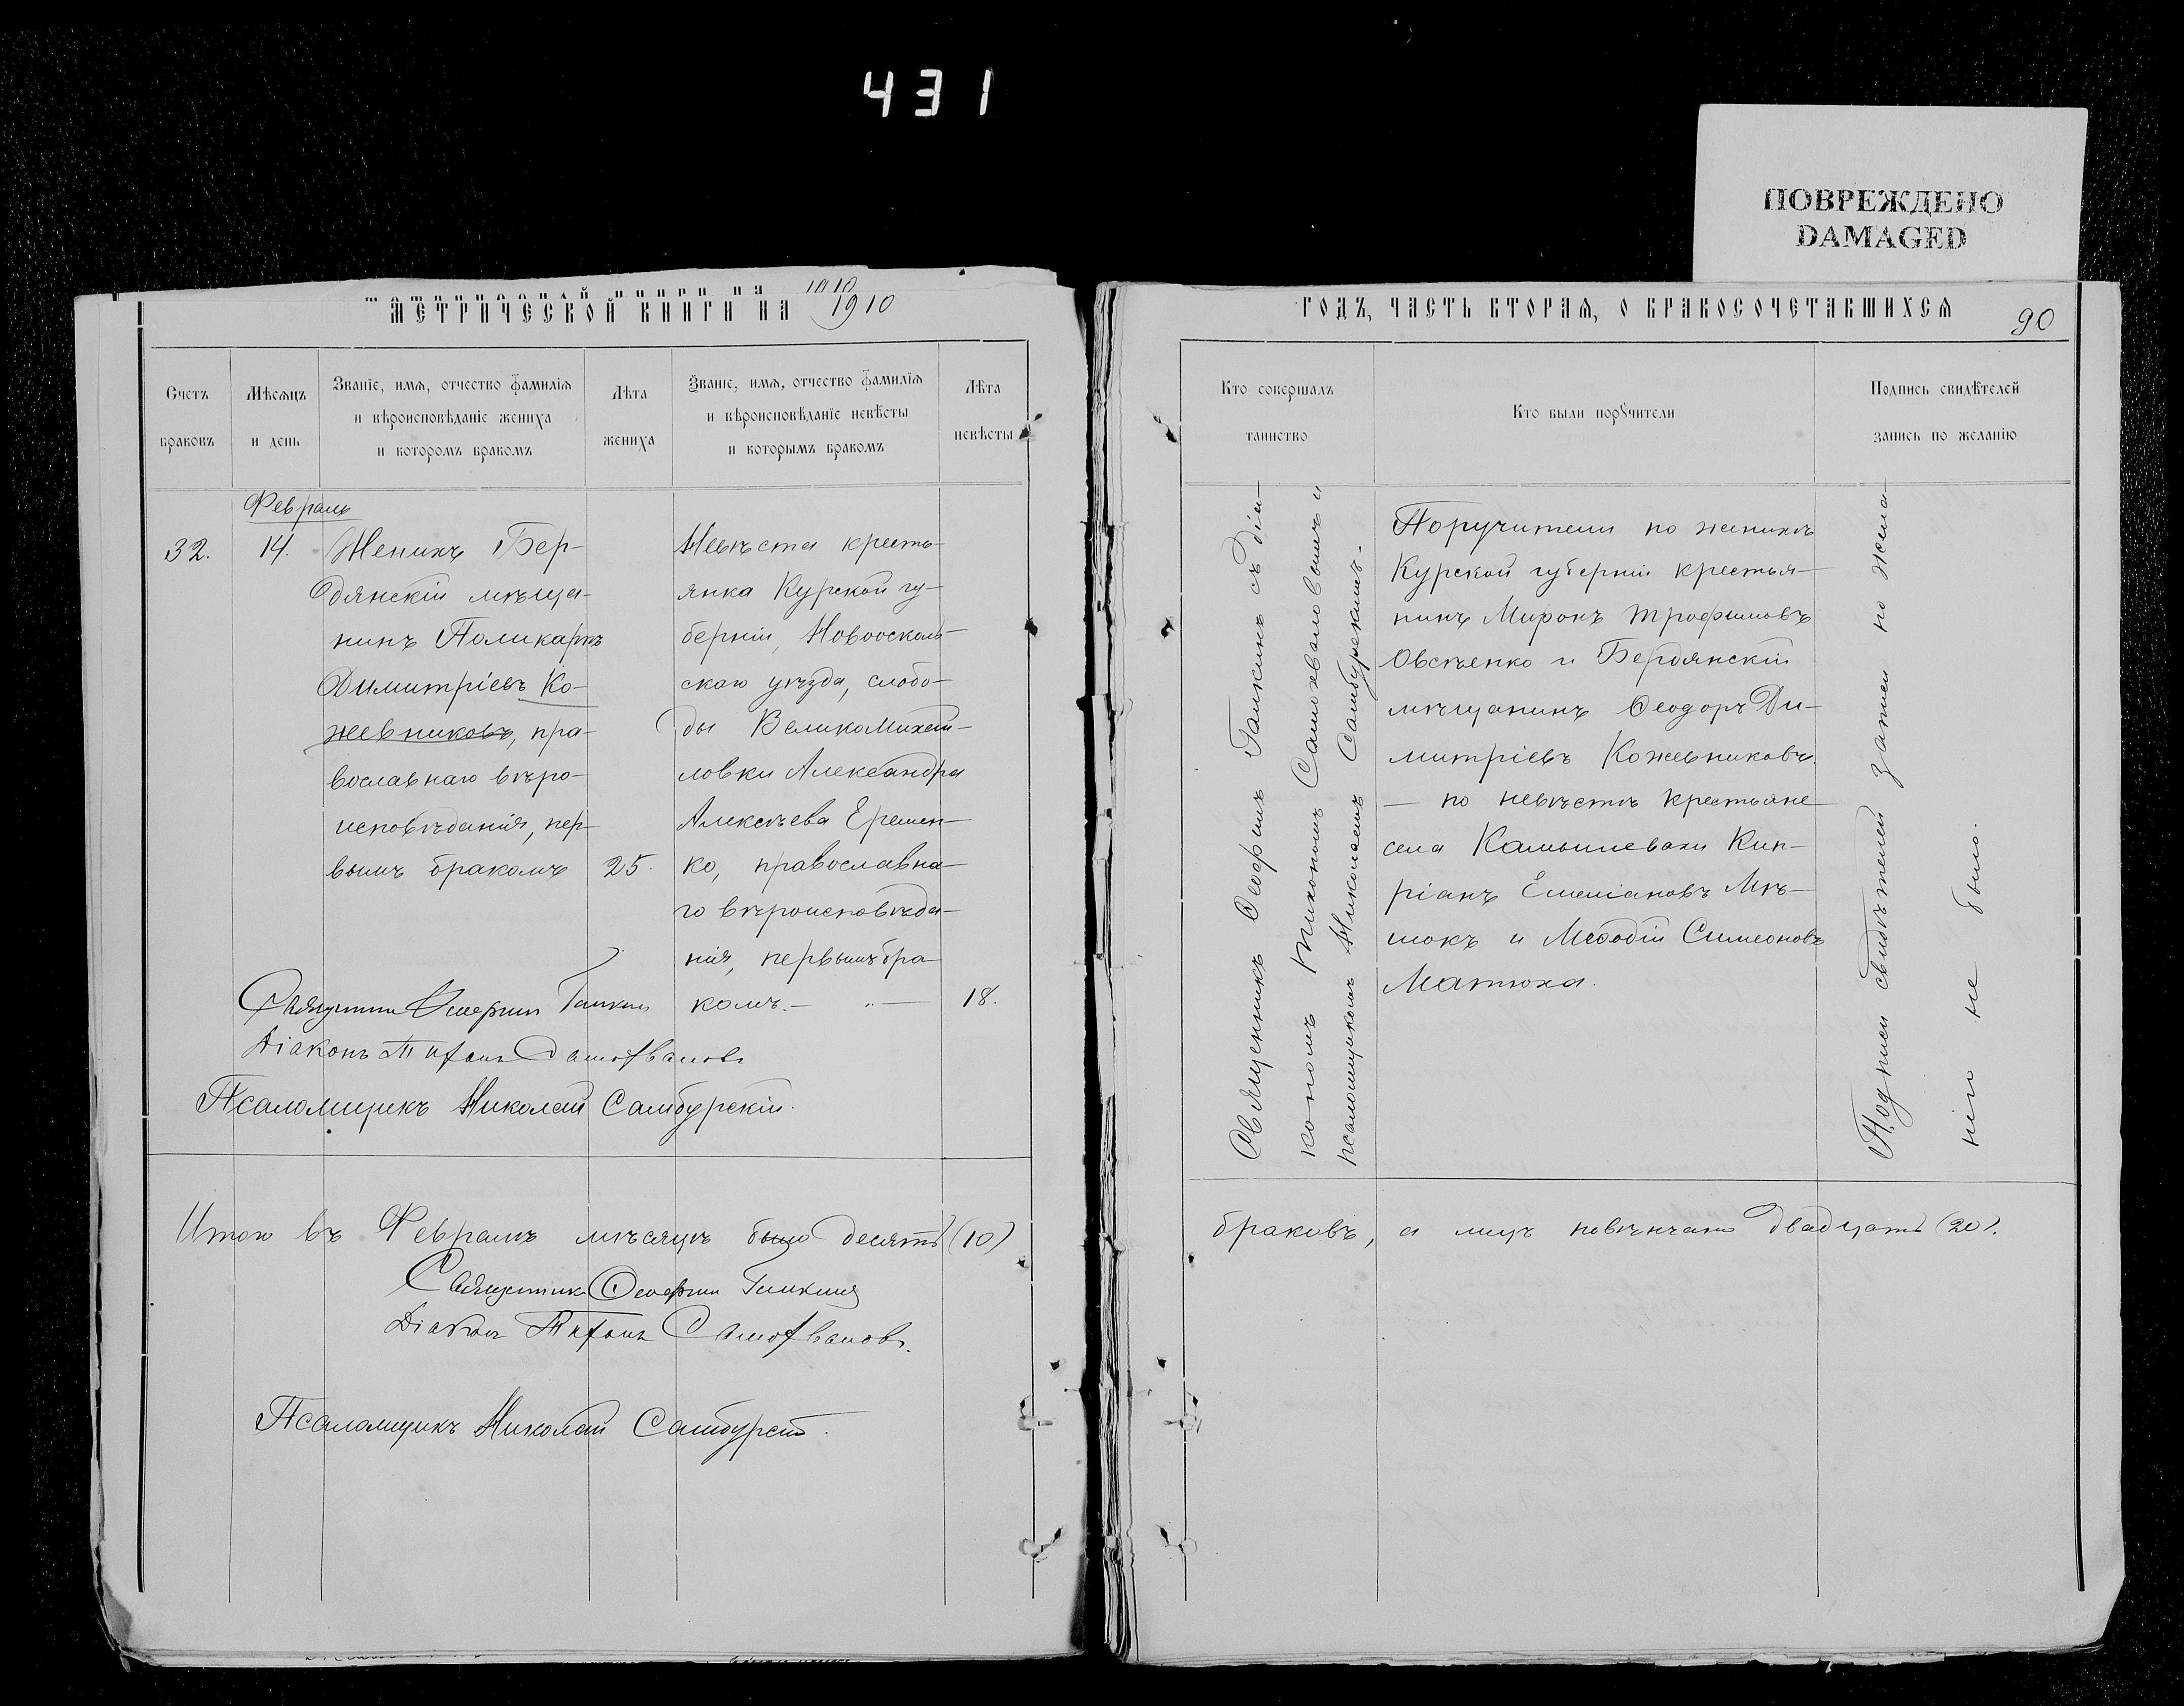 431
ПОВРЕЖДЕНО
DAMAGED
МЕТРИЧЕСКОЙ КНИГИ НА 1910
Счетъ браковъ
Мѣсяцъ и день
Званіе, имя, отчество фамилія
и вѣроисповѣданіе жениха
и которомъ бракомъ
Лѣта жениха
Званіе, имя, отчество фамилія
и вѣроисповѣданіе невѣсты
и которымъ бракомъ
Лѣта невѣсты
Февраль
32.
14.
Женихъ Бер-
дянскій мѣща-
нинъ Поликарпъ
Димитріевъ Ко-
жевниковъ, пра-
вославнаго вѣро-
исповѣданія, пер-
вымъ бракомъ
25.
Невѣста кресть-
янка Курской гу-
берніи, Новоосколь-
скаго уѣзда, слобо-
ды ВеликоМихай-
ловки Александра
Алексѣева Еремен-
ко, православна-
го вѣроисповѣда-
нія, первымъ бра-
комъ. — „ —
18.
Священникъ Ѳеофилъ Галкинъ
Діаконъ Тихонъ Самохваловъ
Псаломщикъ Николай Самбурскій.
Итого въ Февралѣ мѣсяцѣ было десять (10)
Священникъ Ѳеофилъ Галкинъ
Діаконъ Тихонъ Самохваловъ.
Псаломщикъ Николай Самбурскій.
ГОДЪ, ЧАСТЬ ВТОРАЯ, О БРАКОСОЧЕТАВШИХСЯ
90
Кто совершалъ
таинство
Кто были порꙋчители
Подпись свидѣтелей
запись по желанію
Священникъ Ѳеофилъ Галкинъ съ діа-
кономъ Тихономъ Самохваловымъ и
псаломщикомъ Николаемъ Самбурскимъ.
Поручители по женихѣ
Курской губерніи крестья-
нинъ Миронъ Трофимовъ
Овсѣенко и Бердянскій
мѣщанинъ Ѳеодоръ Ди-
митріевъ Кожевниковъ.
— по невѣстѣ крестьяне
села Камышевахи Кип-
ріанъ Емеліановъ Мѣ-
шокъ и Меѳодій Симеоновъ
Матюха.
Подписи свидѣтелей записи по жела-
нію не было.
браковъ, а лицъ повѣнчано двадцать (20).